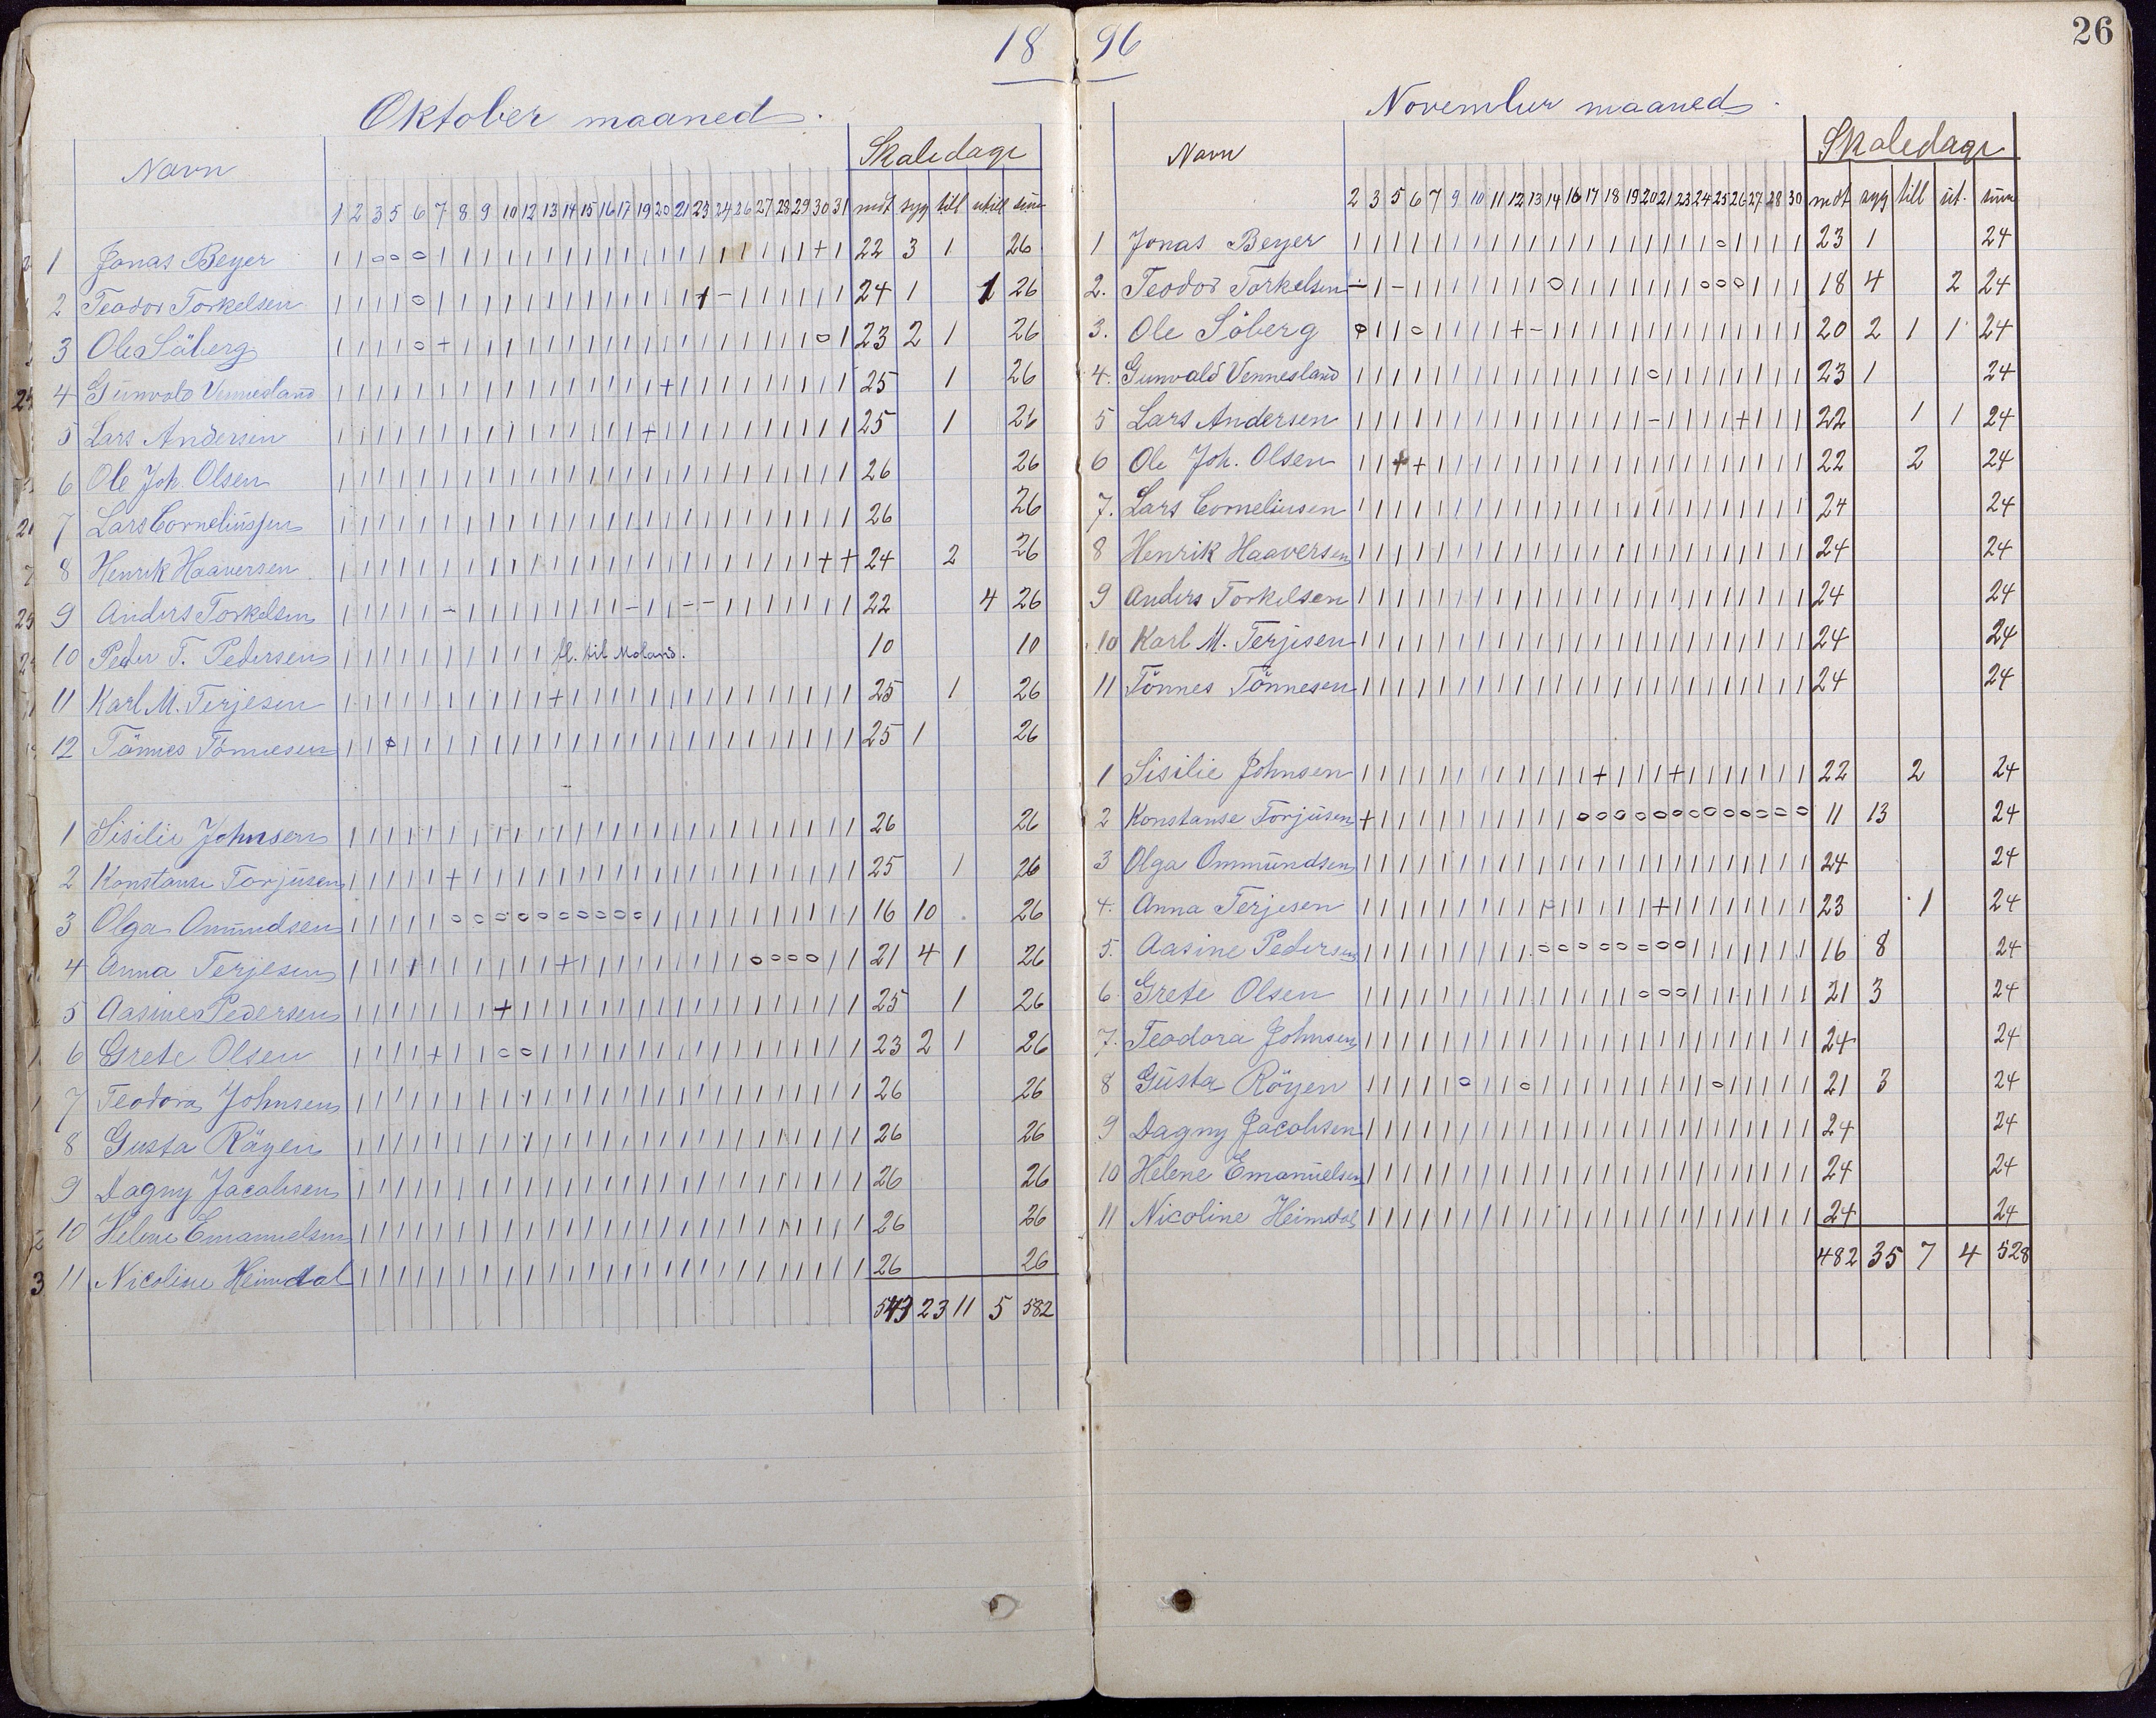 18
Oktober maaned.
Skoledage
Navn
1 2 3 5 6 7 8 9 10 12 13 14 15 16 17 19 20 21 23 24 26 27 28 29 30 31 mdt syg till util sum
1 Jonas Beyer | | o o o | | | | | | | | | | | | | | | | | | | + | 22 3 1 26
2 Teodor Torkelsen | | | | o | | | | | | | | | | | | | | - | | | | | | 24 1 1 26
3 Ole Söberg | | | | o + | | | | | | | | | | | | | | | | | | o | 23 2 1 26
4 Gunvald Vennesland | | | | | | | | | | | | | | | | + | | | | | | | | | 25 1 26
5 Lars Andersen | | | | | | | | | | | | | | | + | | | | | | | | | | 25 1 26
6 Ole Joh. Olsen | | | | | | | | | | | | | | | | | | | | | | | | | | 26 26
7 Lars Corneliussen | | | | | | | | | | | | | | | | | | | | | | | | | | 26 26
8 Henrik Haaversen | | | | | | | | | | | | | | | | | | | | | | | | + + 24 2 26
9 Anders Torkelsen | | | | | - | | | | | | | | - | | - - | | | | | | | 22 4 26
10 Peder T. Pedersen | | | | | | | | | | fl. til Moland. 10 10
11 Karl M. Terjesen | | | | | | | | | | + | | | | | | | | | | | | | | | 25 1 26
12 Tönnes Tönnesen | | o | | | | | | | | | | | | | | | | | | | | | | | 25 1 26
1 Sisilie Johnsen | | | | | | | | | | | | | | | | | | | | | | | | | | 26 26
2 Konstanse Torjusen | | | | | + | | | | | | | | | | | | | | | | | | | | 25 1 26
3 Olga Omundsen | | | | | o o o o o o o o o o | | | | | | | | | | | 16 10 26
4 Anna Terjesen | | | | | | | | | | + | | | | | | | | | o o o o | | 21 4 1 26
5 Aasine Pedersen | | | | | | | + | | | | | | | | | | | | | | | | | | 25 1 26
6 Grete Olsen | | | | + | | o o | | | | | | | | | | | | | | | | | 23 2 1 26
7 Teodora Johnsen | | | | | | | | | | | | | | | | | | | | | | | | | | 26 26
8 Gusta Röyen | | | | | | | | | | | | | | | | | | | | | | | | | | 26 26
9 Dagny Jacobsen | | | | | | | | | | | | | | | | | | | | | | | | | | 26 26
10 Helene Emanuelsen | | | | | | | | | | | | | | | | | | | | | | | | | | 26 26
11 Nicoline Heimdal | | | | | | | | | | | | | | | | | | | | | | | | | | 26 26
543 23 11 5 582
96
26
November maaned.
Skoledage
Navn
2 3 5 6 7 9 10 11 12 13 14 16 17 18 19 20 21 23 24 25 26 27 28 30 mdt syg till ut. sum
1 Jonas Beyer | | | | | | | | | | | | | | | | | | | o | | | | 23 1 24
2. Teodor Torkelsen - | - | | | | | | | o | | | | | | | o o o | | | 18 4 2 24
3. Ole Söberg o | | o | | | | + - | | | | | | | | | | | | | | 20 2 1 1 24
4. Gunvald Vennesland | | | | | | | | | | | | | | | o | | | | | | | | 23 1 24
5 Lars Andersen | | | | | | | | | | | | | | | - | | | | + | | | 22 1 1 24
6 Ole Joh. Olsen | | + + | | | | | | | | | | | | | | | | | | | | 22 2 24
7. Lars Corneliusen | | | | | | | | | | | | | | | | | | | | | | | | 24 24
8 Henrik Haaversen | | | | | | | | | | | | | | | | | | | | | | | | 24 24
9 Anders Torkelsen | | | | | | | | | | | | | | | | | | | | | | | | 24 24
10 Karl M. Terjesen | | | | | | | | | | | | | | | | | | | | | | | | 24 24
11 Tönnes Tönnesen | | | | | | | | | | | | | | | | | | | | | | | | 24 24
1 Sisilie Johnsen | | | | | | | | | | | | + | | | + | | | | | | | 22 2 24
2 Konstanse Torjusen + | | | | | | | | | | o o o o o o o o o o o o o 11 13 24
3 Olga Ommundsen | | | | | | | | | | | | | | | | | | | | | | | | 24 24
4. Anna Terjesen | | | | | | | | | | | | | | | + | | | | | | | | 23 1 24
5. Aasine Pedersen | | | | | | | | | o o o o o o o o | | | | | | | 16 8 24
6. Grete Olsen | | | | | | | | | | | | | | o o o | | | | | | | 21 3 24
7. Teodora Johnsen | | | | | | | | | | | | | | | | | | | | | | | | 24 24
8 Gusta Röyen | | | | | o | | o | | | | | | | | | | o | | | | 21 3 24
9 Dagny Jacobsen | | | | | | | | | | | | | | | | | | | | | | | | 24 24
10 Helene Emanuelsen | | | | | | | | | | | | | | | | | | | | | | | | 24 24
11 Nicoline Heimdal | | | | | | | | | | | | | | | | | | | | | | | | 24 24
482 35 7 4 528